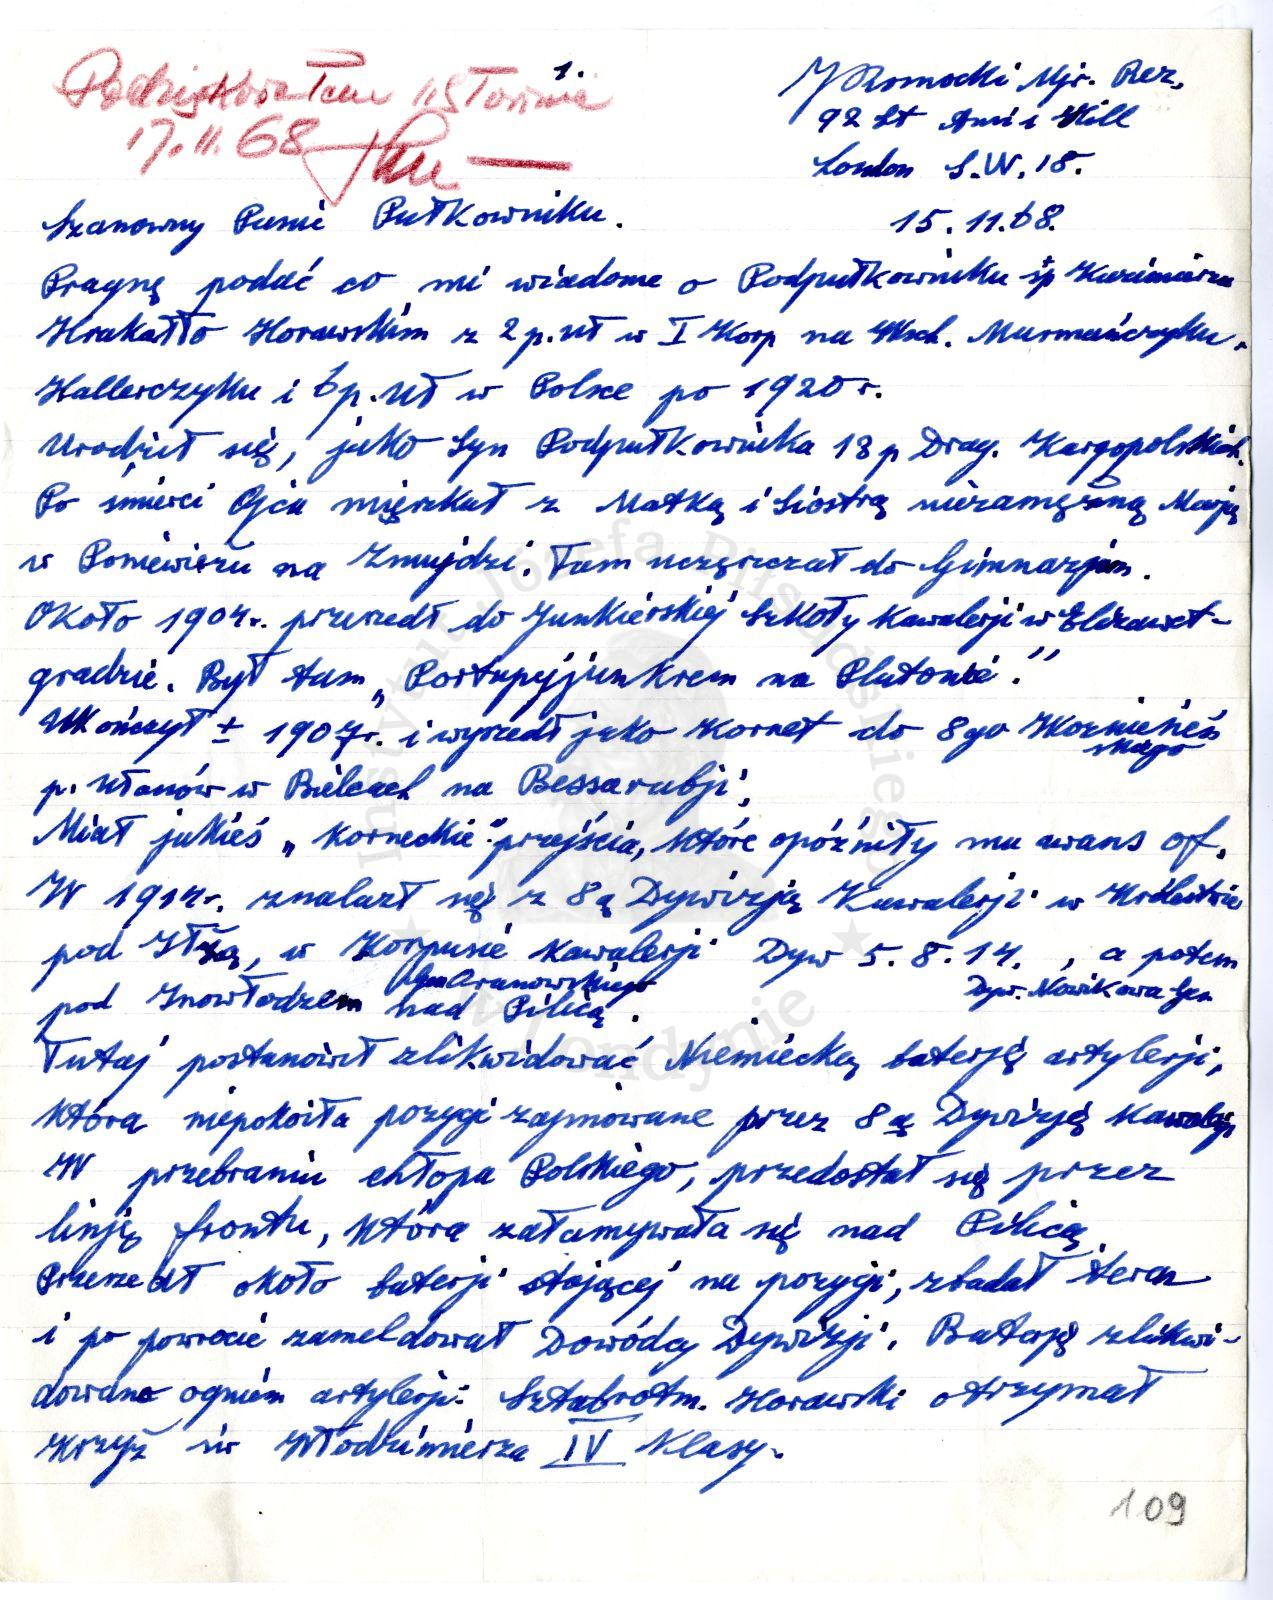 1.
Podziękowałem listownie
17.11.68
J Romocki Mjr. Rez.
92 St Ann's Hill
London S.W.18.
15.11.68.
Szanowny Panie Pułkowniku.
Pragnę podać co mi wiadome o Podpułkowniku śp Kazimierzu
Krakałło Horawskim z 2 p.uł w I Korp na Wsch. Murmańczyku,
Hallerczyku i 6 p.uł w Polsce po 1920 r.
Urodził się, jako Syn Podpułkownika 13 p Drag. Kargopolskich.
Po śmierci Ojca mięszkał z Matką i Siostrą niezamężną Marją
w Poniewieżu na Żmujdzi. Tam uczęszczał do Gimnazjum.
Około 1904 r. przeszedł do Junkierskiej Szkoły Kawalerji w Elizawet-
gradzie. Był tam „Portupyjjunkrem na Plutonie."
Ukończył ± 1907 r. i wyszedł jako Kornet do 8go Wozniesień
skiego
p. Ułanów w Bielcach na Bessarabji,
Miał jakieś „Korneckie" przejścia, które opóźniły mu awans of.
W 1914 r. znalazł się z 8ą Dywizją Kawalerji w Królestwie
pod Iłżą, w Korpusie Kawalerji Dyw 5. 8. 14. , a potem
Dyw. Nowikowa Gen
pod Inowłodzem nad Pilicą.
Tutaj postanowił zlikwidować Niemiecką baterję artylerji,
która niepokoiła pozycji zajmowane przez 8ą Dywizję Kawalerji
W przebraniu chłopa Polskiego, przedostał się przez
linję frontu, która załamywała się nad Pilicą.
Przeszedł około baterji stojącej na pozycji, zbadał teren
i po powrocie zameldował Dowódcy Dywizji. Baterję zlikwi-
dowano ogniem artylerji. Sztabrotm. Horawski otrzymał
Krzyż św Włodzimierza IV Klasy.
109
Instytut Józefa Piłsudskiego
w Londynie